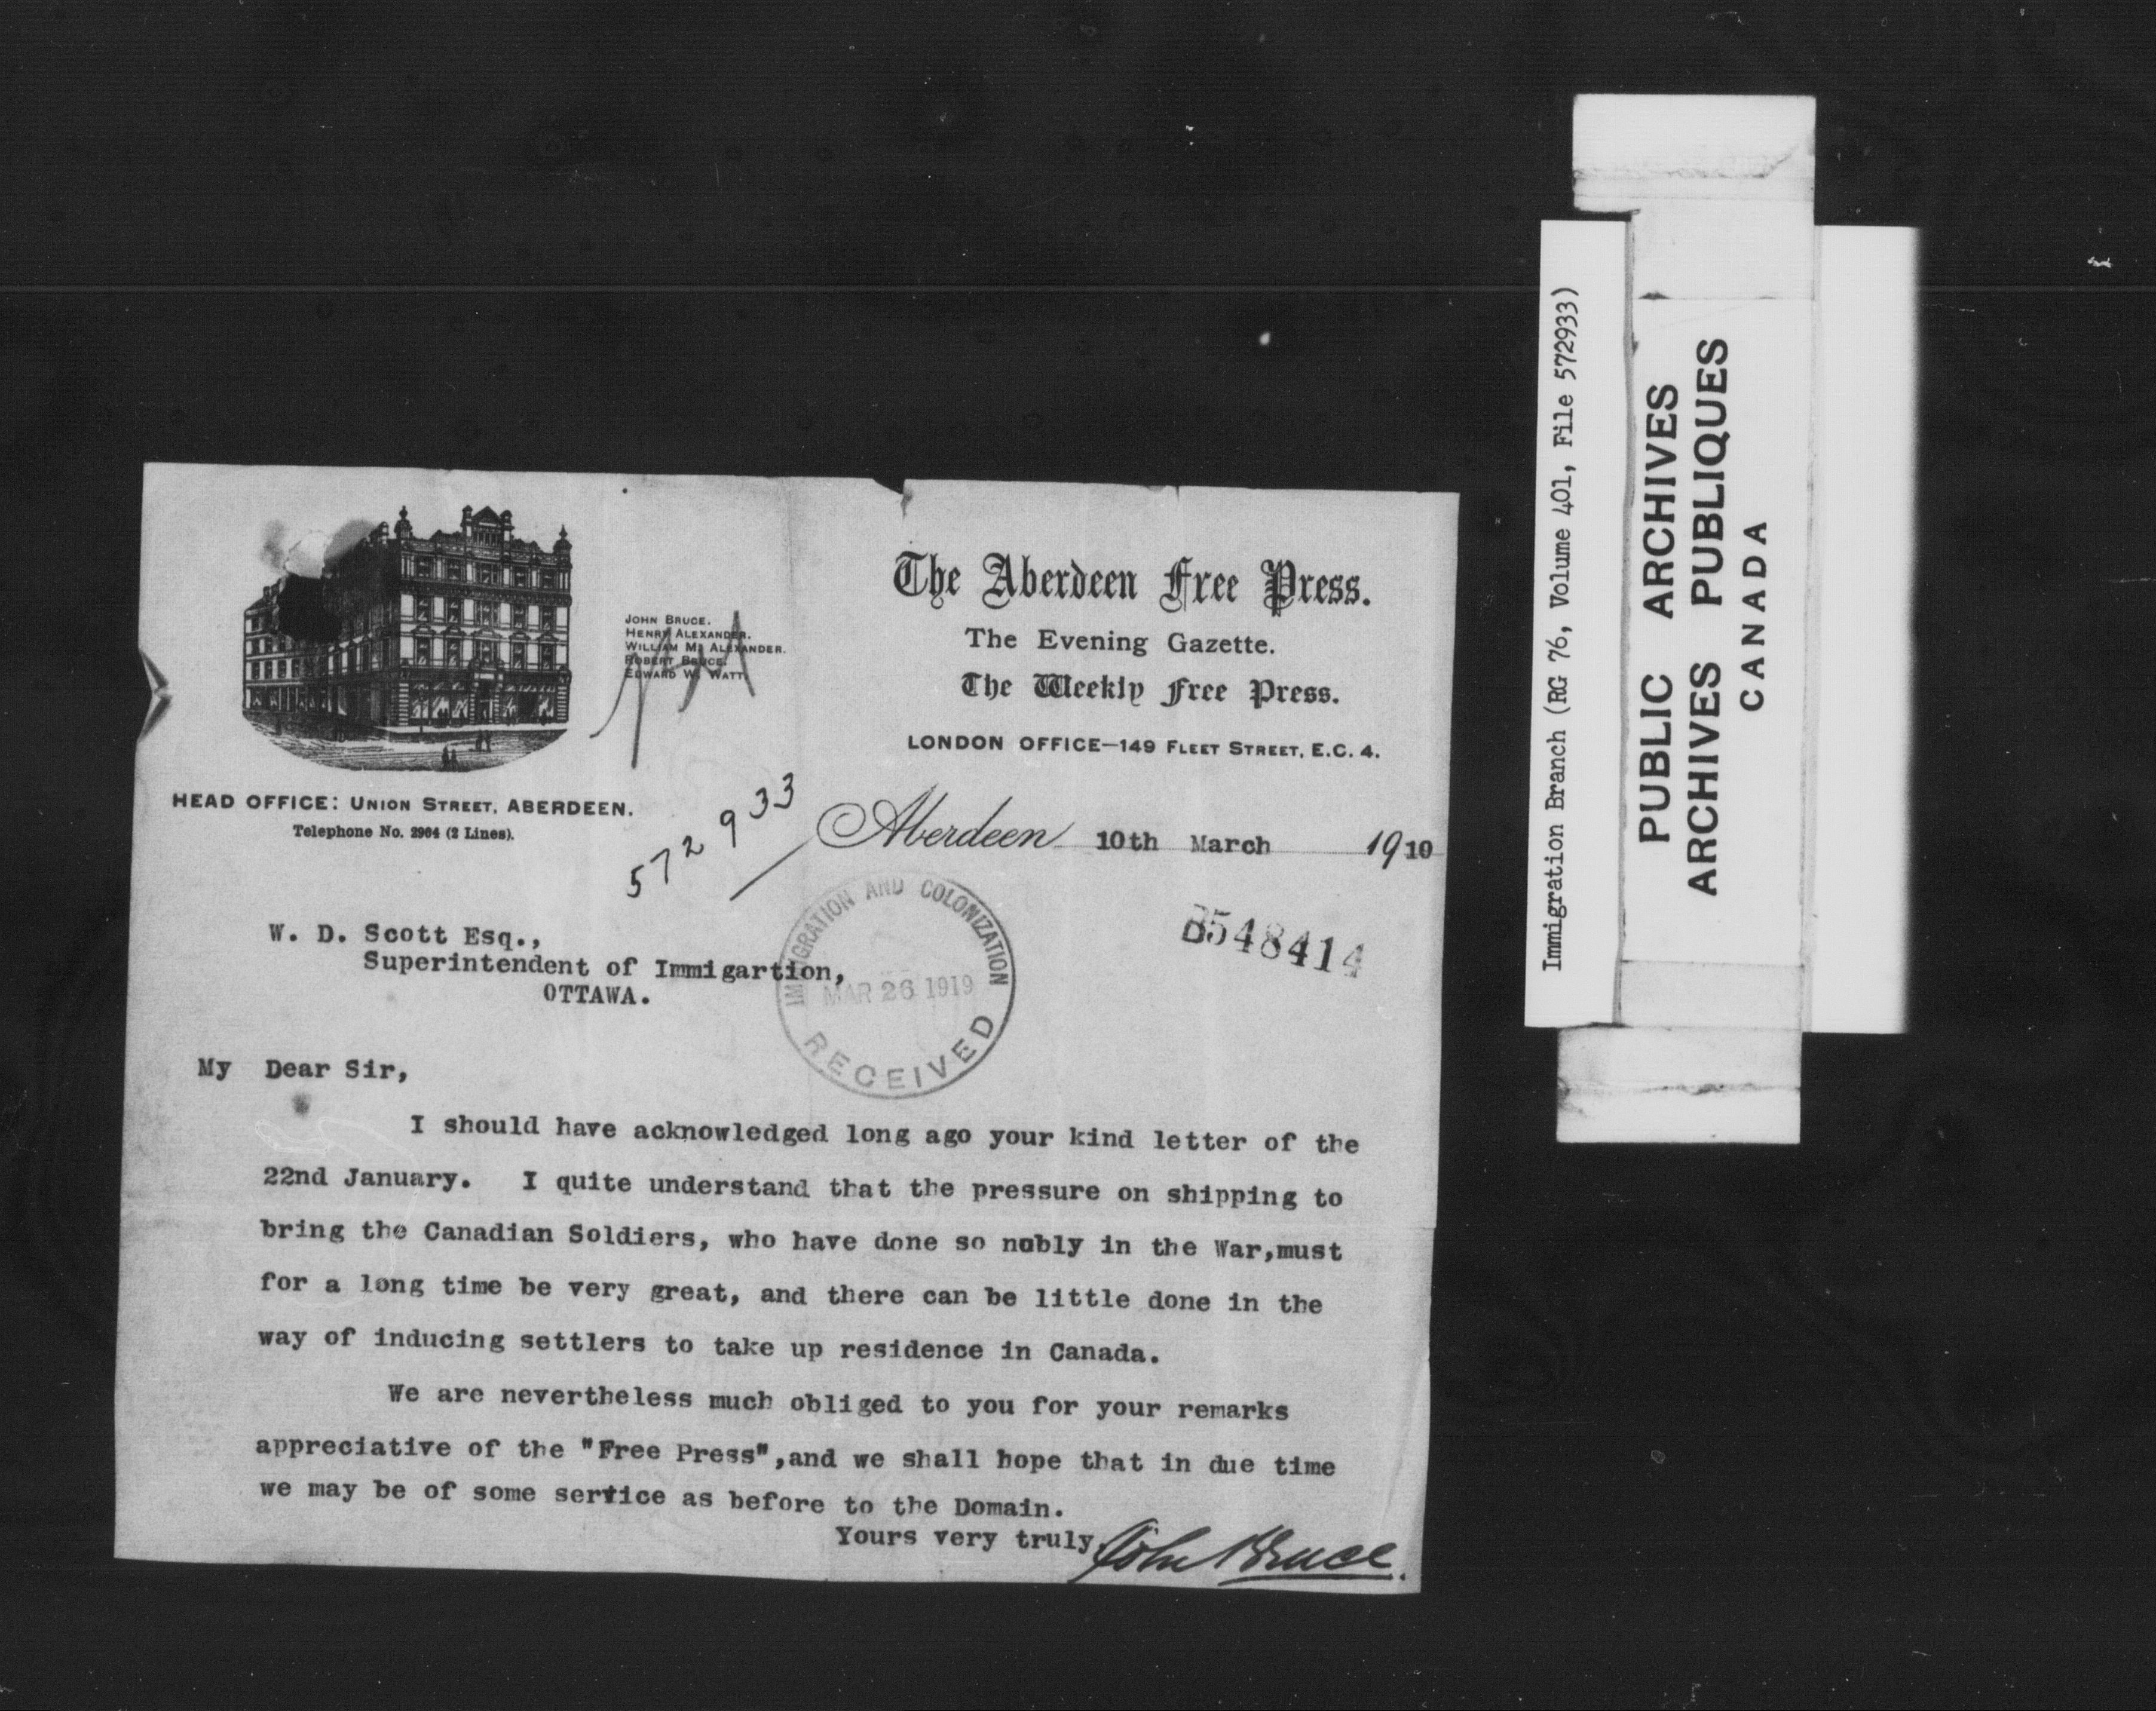 JOHN BRUCE.
HENRY ALEXANDER.
WILLIAM M. ALEXANDER.
ROBERT BRUCE.
EDWARD W. WATT.
The Aberdeen Free Press.
The Evening Gazette.
The Weekly Free Press.
LONDON OFFICE—149 FLEET STREET, E.C. 4.
HEAD OFFICE: UNION STREET, ABERDEEN.
Telephone No. 2964 (2 Lines).
572933
Aberdeen 10th March 1910
B548414
W. D. Scott Esq.,
Superintendent of Immigartion,
OTTAWA.
IMMIGRATION AND COLONIZATION
MAR 26 1919
RECEIVED
My Dear Sir,
I should have acknowledged long ago your kind letter of the
22nd January. I quite understand that the pressure on shipping to
bring the Canadian Soldiers, who have done so nobly in the War,must
for a long time be very great, and there can be little done in the
way of inducing settlers to take up residence in Canada.
We are nevertheless much obliged to you for your remarks
appreciative of the "Free Press",and we shall hope that in due time
we may be of some service as before to the Domain.
Yours very truly,
John Bruce.
Immigration Branch (RG 76, Volume 401, File 572933)
PUBLIC ARCHIVES
ARCHIVES PUBLIQUES
CANADA